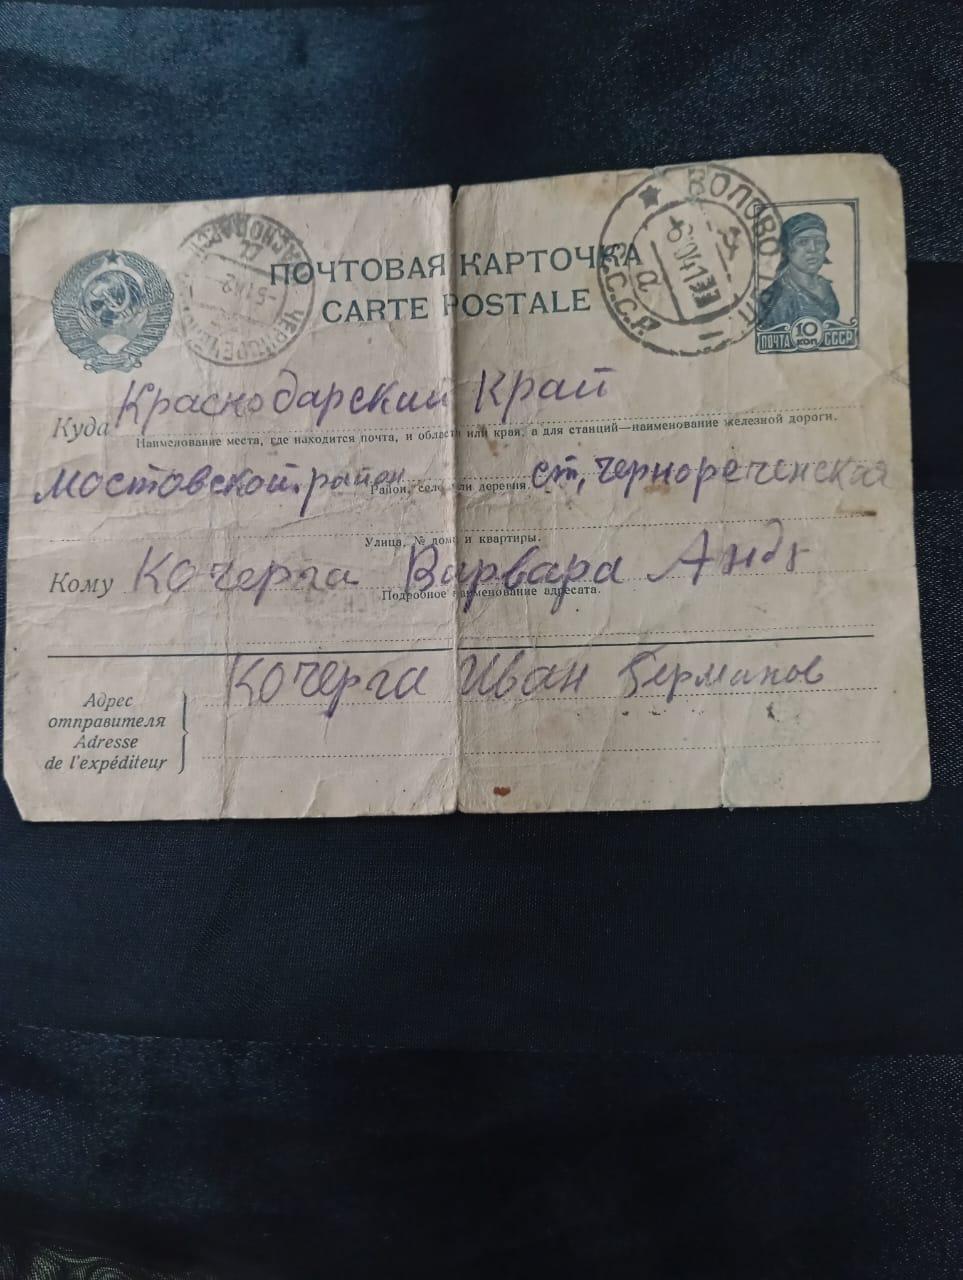 ПОЧТОВАЯ КАРТОЧКА
CARTE POSTALE
ВОЛОВО
С.С.С.Р.
ПОЧТА 10 КОП СССР
Куда Краснодарский Край
Наименование места, где находится почта, и области или края, а для станций—наименование железной дороги.
Мостовской район ст. Чернореченская
Район, село или деревня.
Улица, № дома и квартиры.
Кому Кочерга Варвара Андр
Подробное наименование адресата.
Кочерга Иван Германов
Адрес
отправителя
Adresse
de l'expéditeur